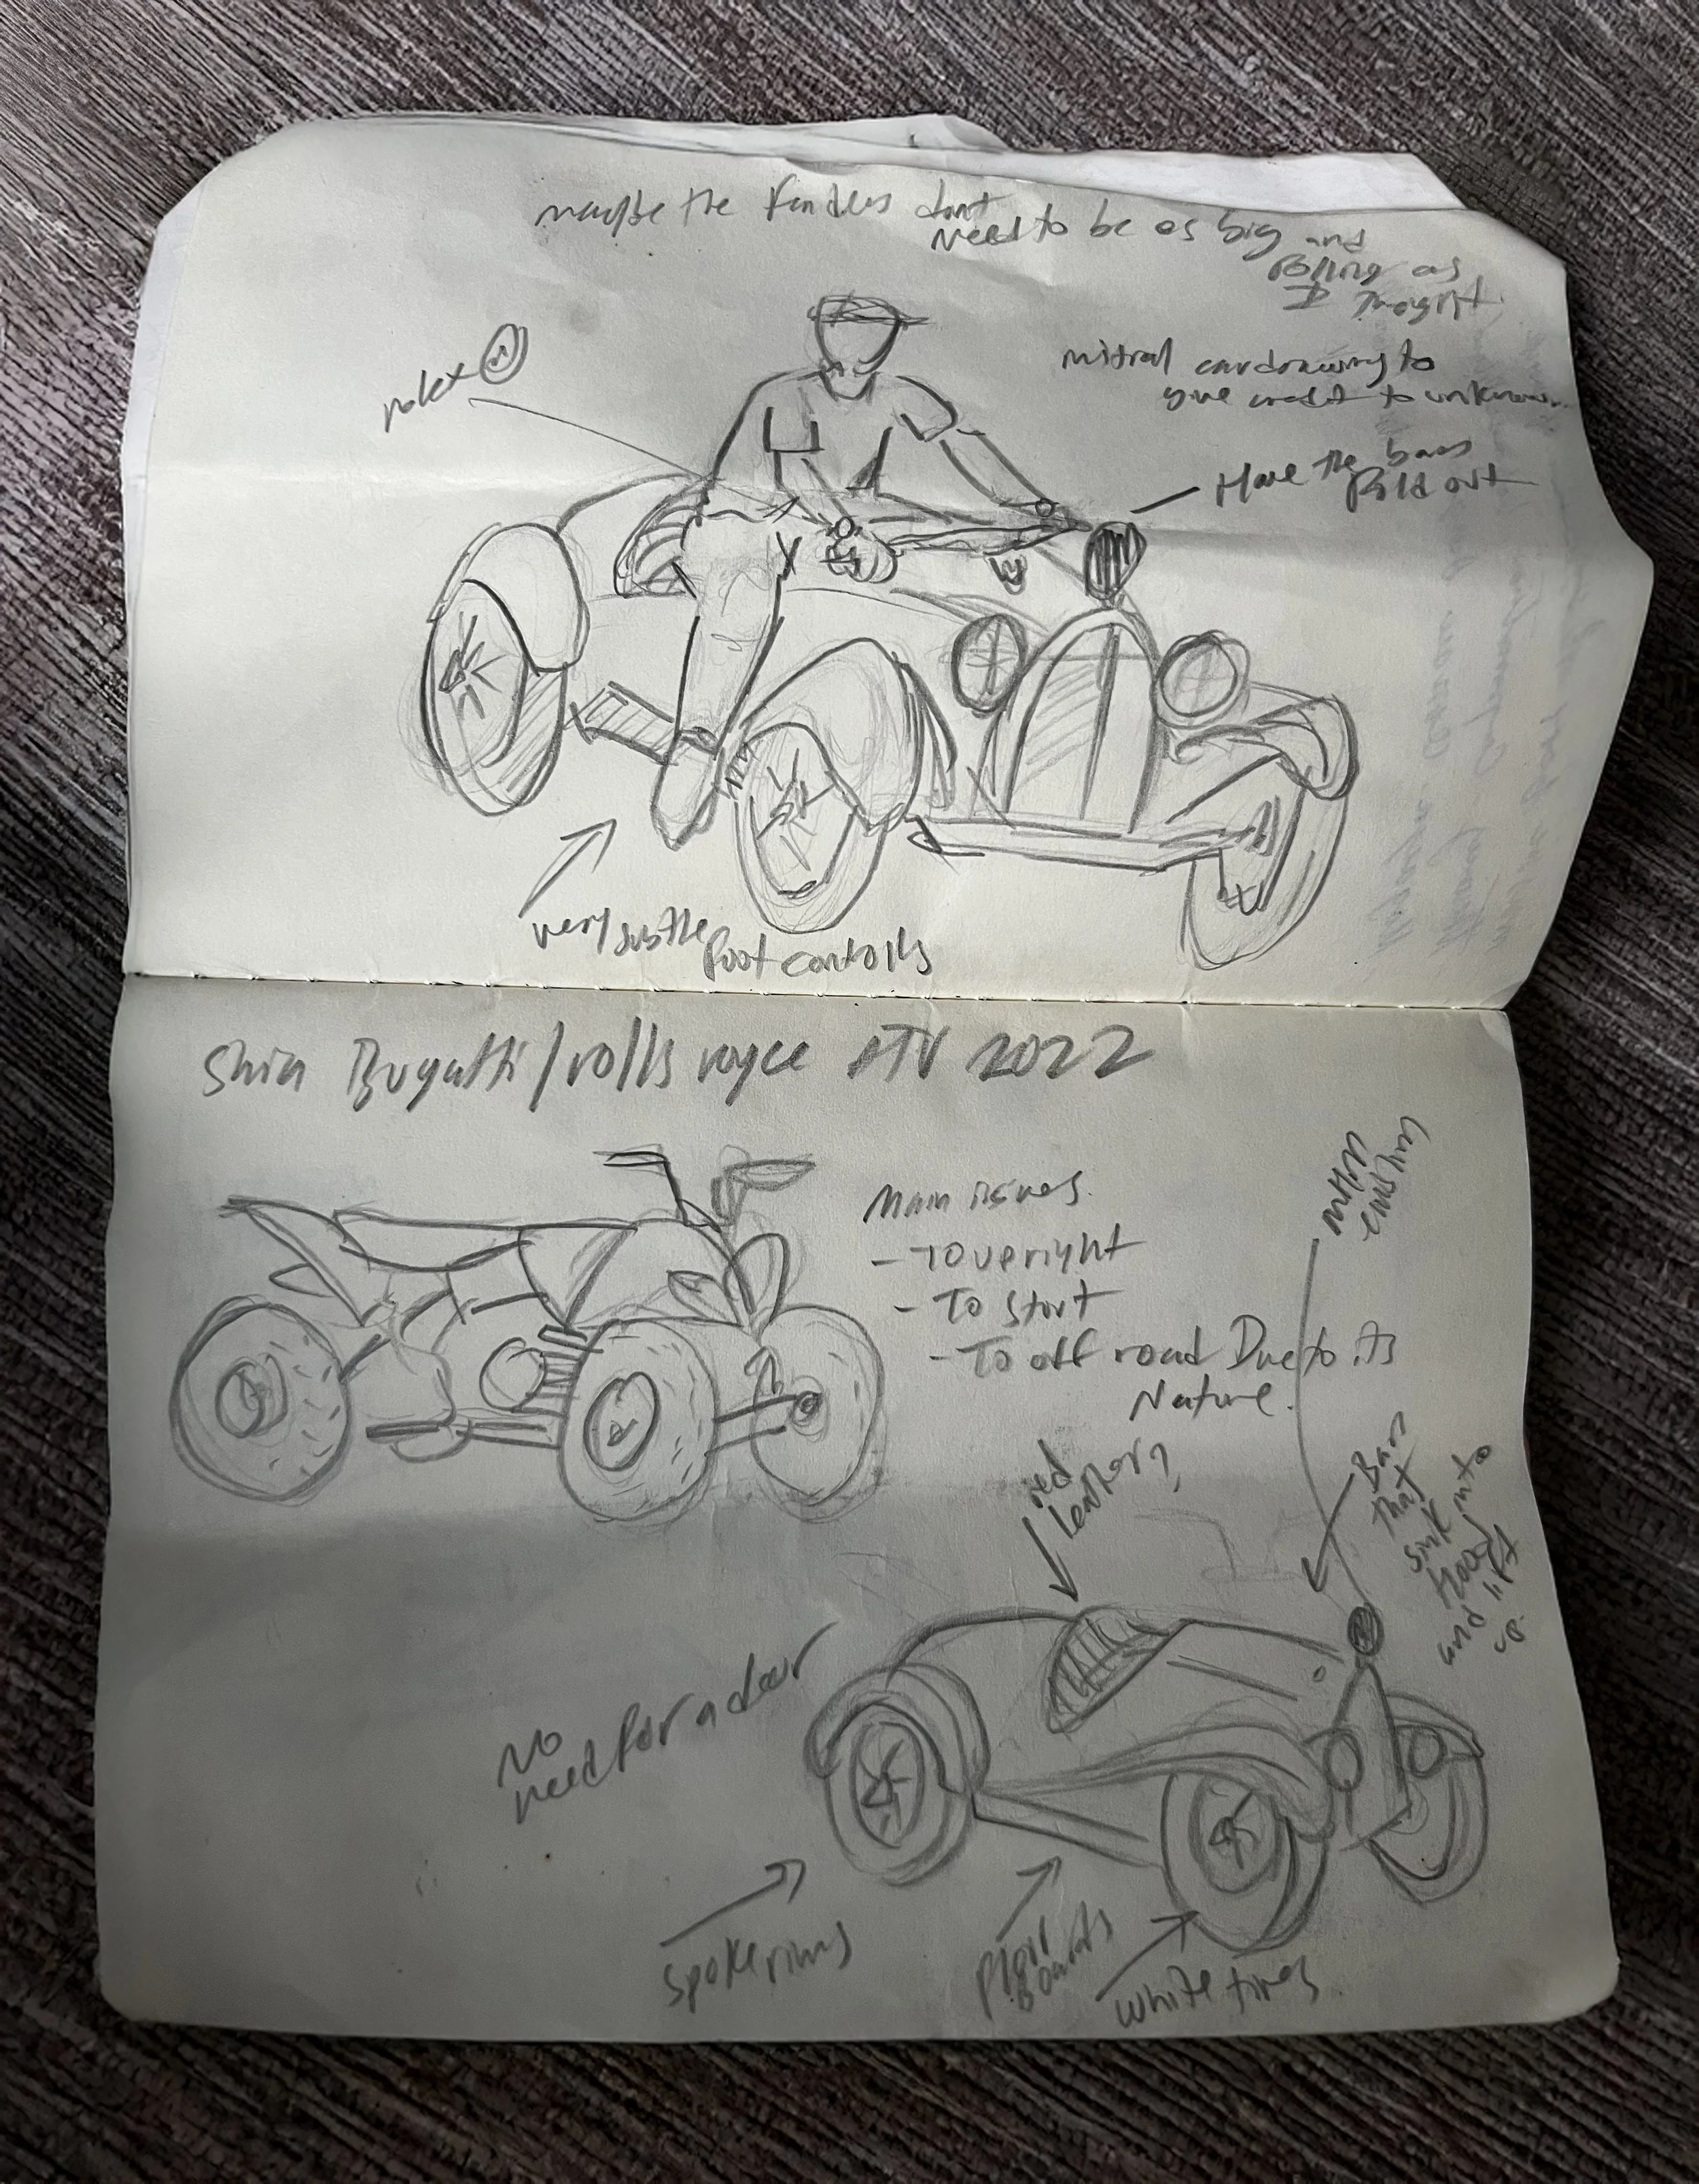 maybe the fenders dont
need to be as big and
Rolling as
I Thought
rolex
cardrawing to
give credit to unknown
Have the bars
Fold out
very subtle
foot controlls
Bugatti/rolls royce ATV 2022
Main issues.
- To
- To start
- To off road Due to its
Nature.
red
Leather?
Bars
That
sink into
Hood
and lift
up.
No
need for a door
spoke rims
Boards
white tires.